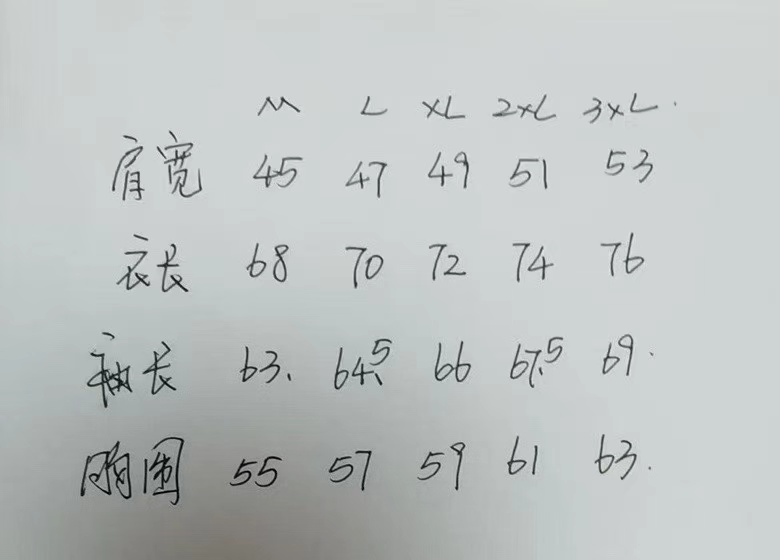 M L XL 2XL 3XL.
肩宽 45 47 49 51 53
衣长 68 70 72 74 76
袖长 63. 64.5 66 67.5 69.
胸围 55 57 59 61 63.